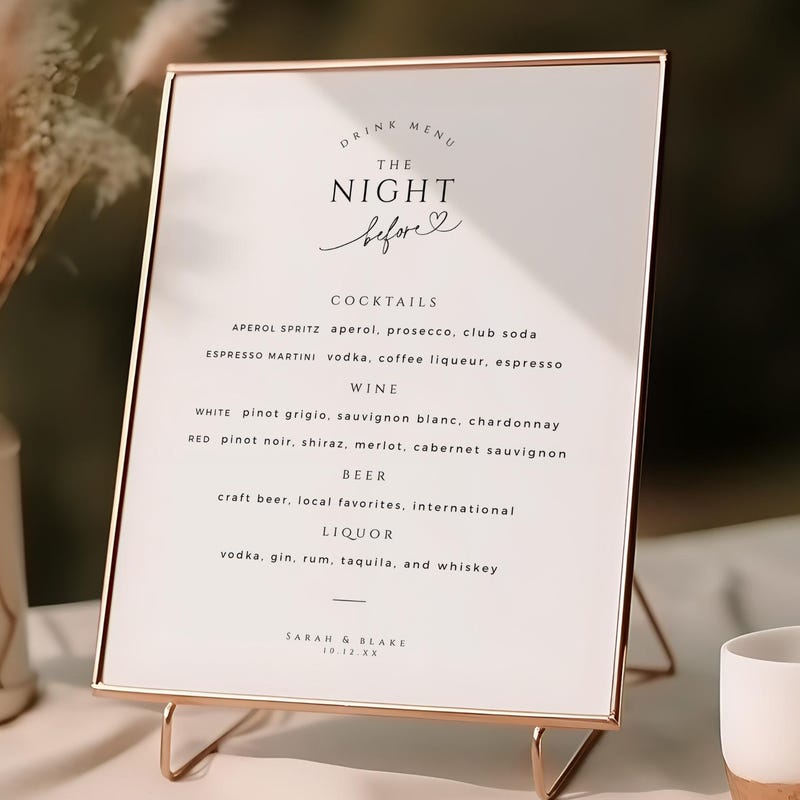 DRINK MENU
THE
NIGHT
before
COCKTAILS
APEROL SPRITZ aperol, prosecco, club soda
ESPRESSO MARTINI vodka, coffee liqueur, espresso
WINE
WHITE pinot grigio, sauvignon blanc, chardonnay
RED pinot noir, shiraz, merlot, cabernet sauvignon
BEER
craft beer, local favorites, international
LIQUOR
vodka, gin, rum, taquila, and whiskey
SARAH & BLAKE
10.12.XX